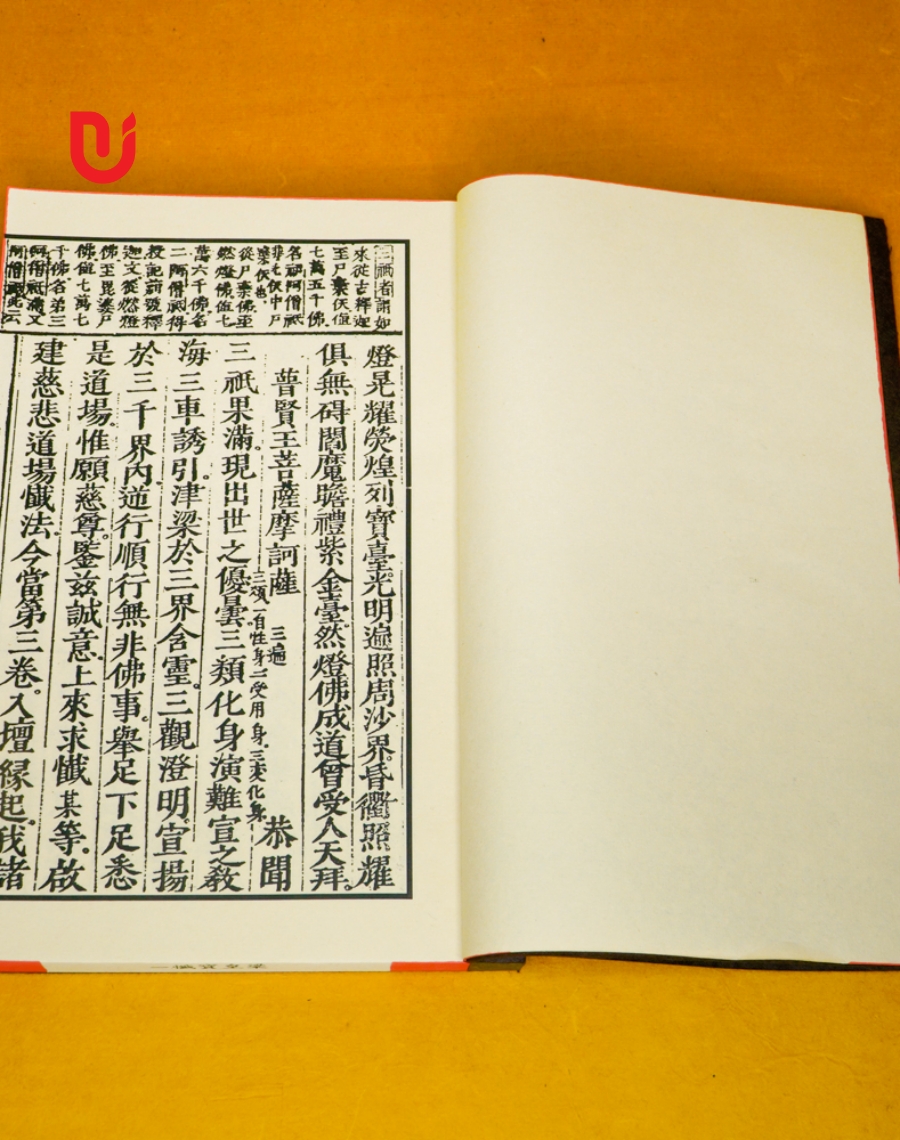 三祇者謂如
來從古釋迦
至尸棄佛值
七萬五千佛
名初阿僧祇
非七佛中尸
棄佛也
從尸棄佛至
然燈佛值七
萬六千佛名
二阿僧祇得
授記前號釋
迦文從燃燈
佛至毘婆尸
佛值七萬七
千佛名第三
阿僧祇滿又
阿僧祇此云
燈晃耀熒煌列寶臺。光明遍照周沙界。昏衢照耀
俱無碍。閻魔瞻禮紫金臺。然燈佛成道。曾受人天拜。
普賢王菩薩摩訶薩 三遍 恭聞
三類一自性身二受用身三変化身
三祇果滿。現出世之優曇。三類化身。演難宣之教
海。三車誘引。津梁於三界含靈。三觀澄明。宣揚
於三千界內。逆行順行無非佛事。舉足下足悉
是道場。惟願慈尊。鑒茲誠意。上來求懺某等。啟
建慈悲道場懺法。今當第三卷。入壇緣起。我諸